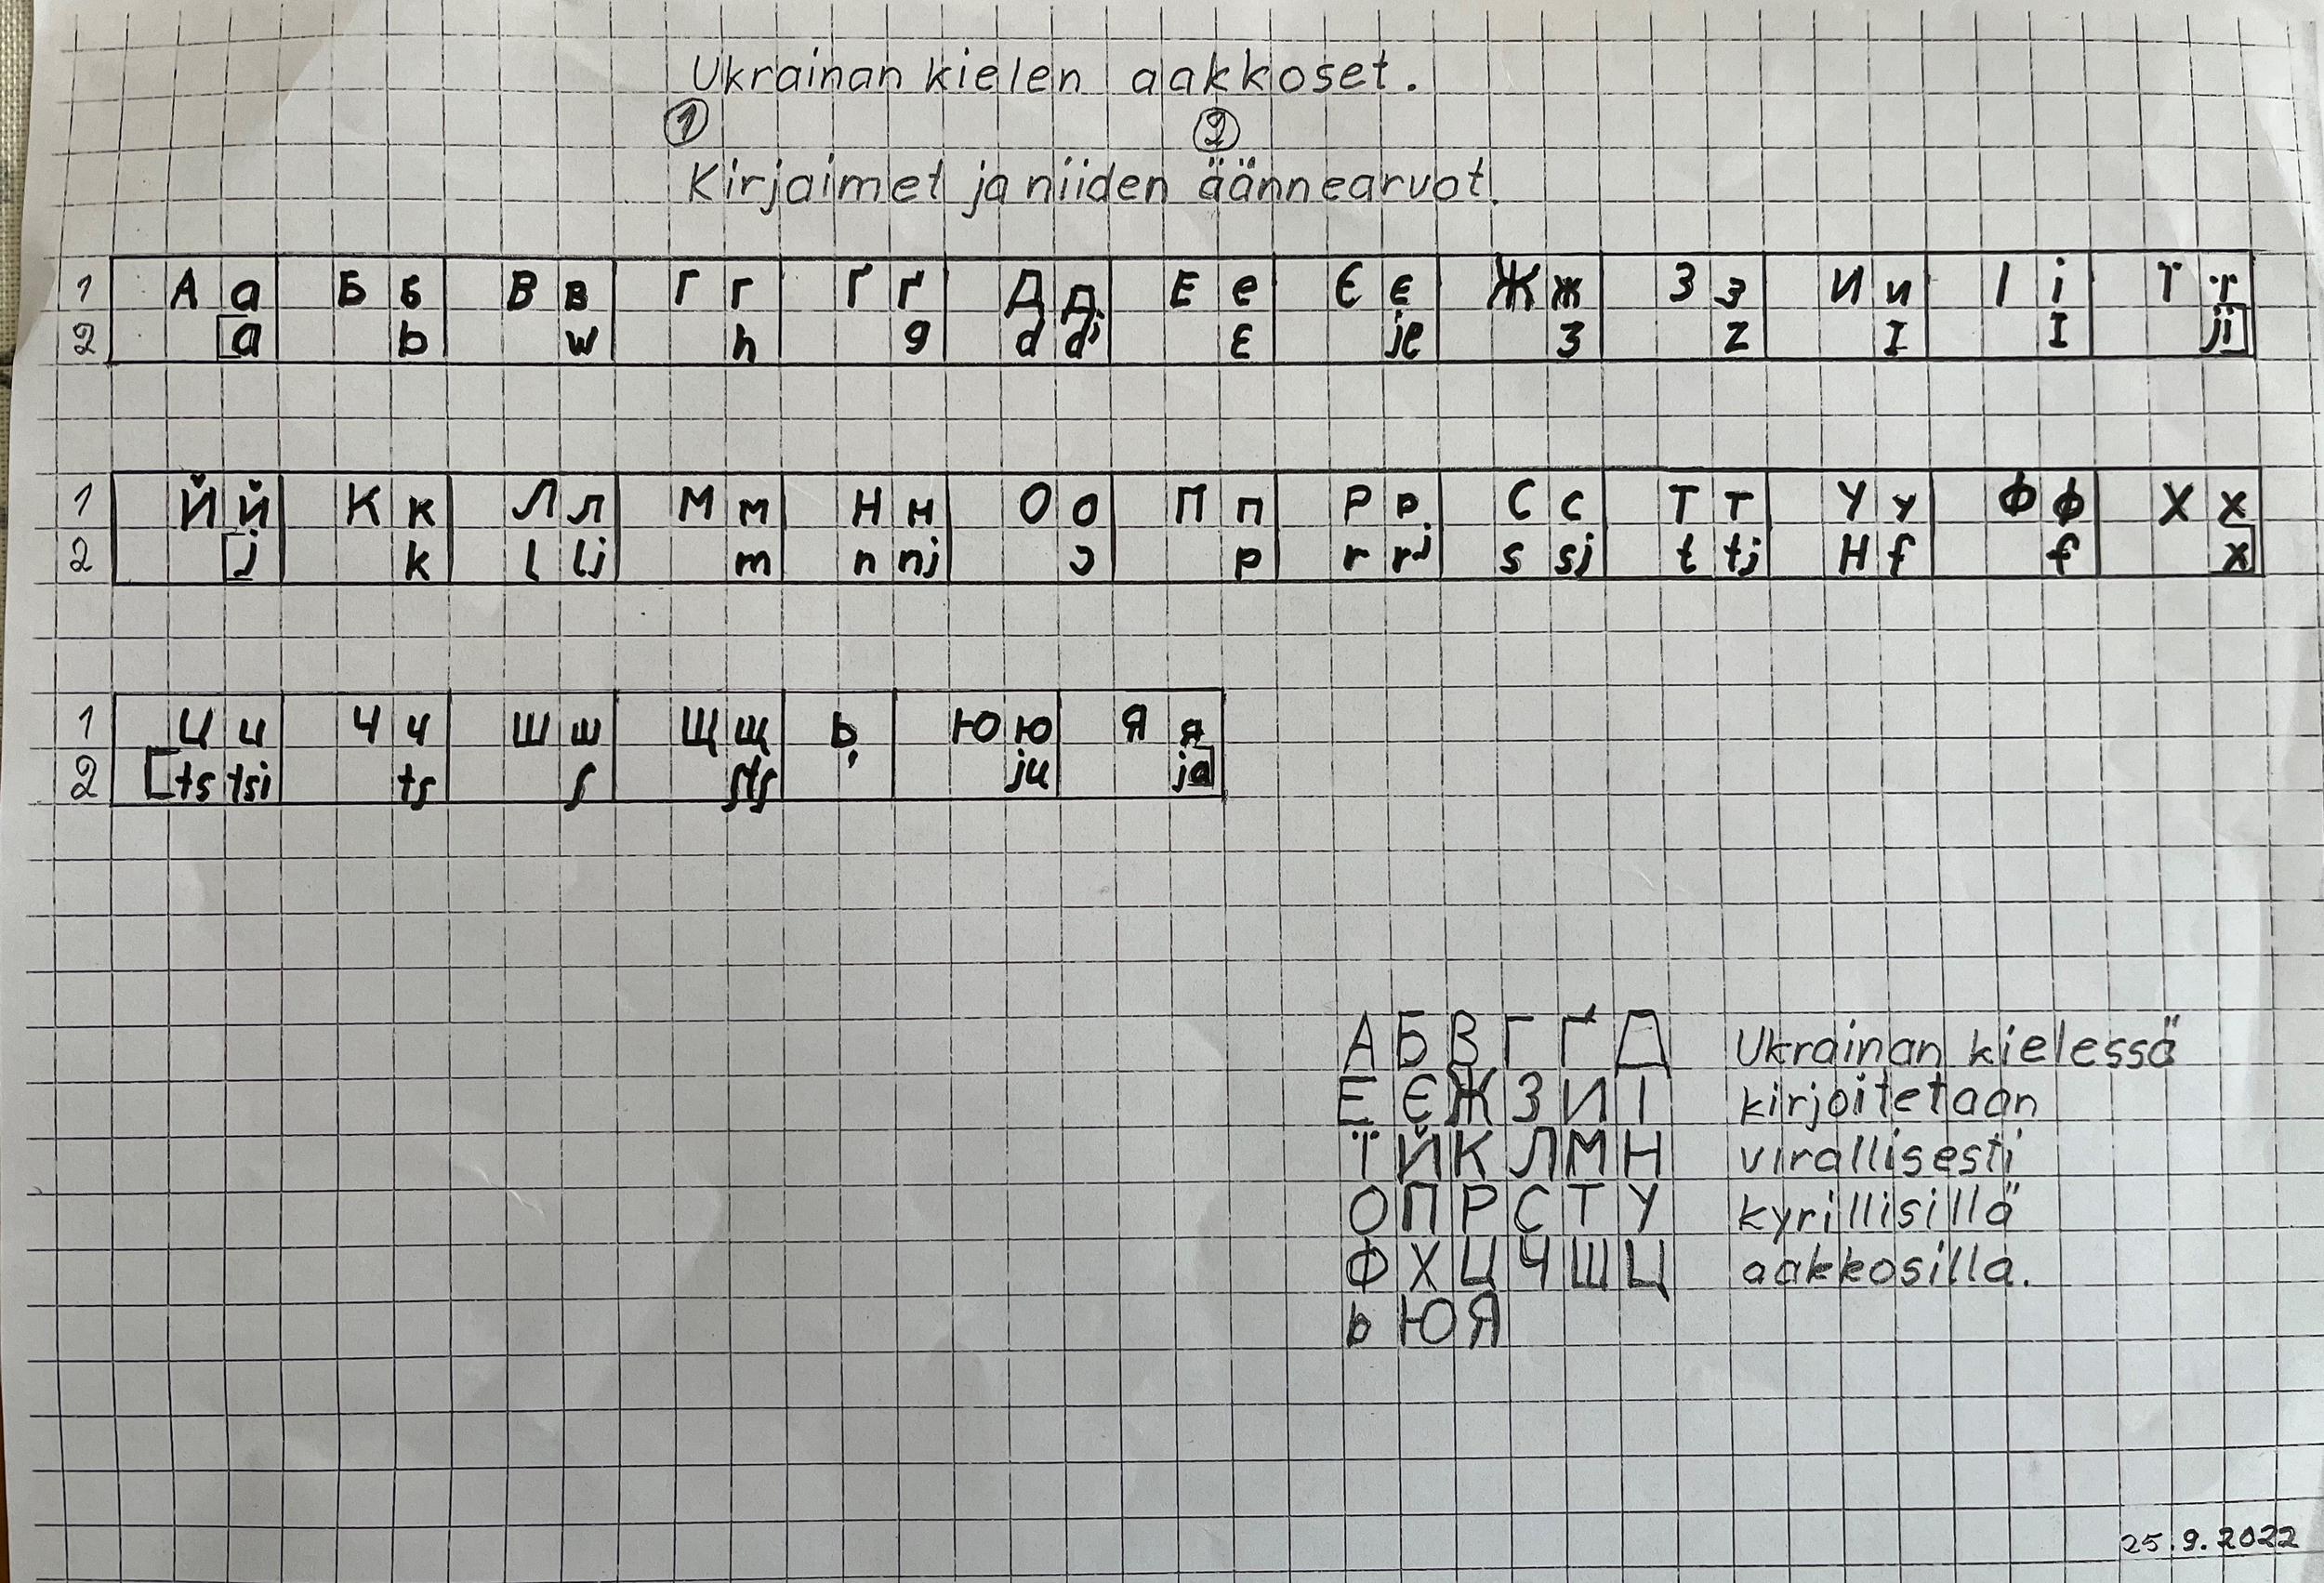 Ukrainan kielen aakkoset.
1 2
Kirjaimet ja niiden äännearvot.
1 А а Б б В в Г г Ґ ґ Д д Е е Є є Ж ж З з И и І і Ї ї
2 [a b w h g d dj ɛ je ʒ z I I ji]
1 Й й К к Л л М м Н н О о П п Р р С с Т т У у Ф ф Х х
2 [j k l lj m n nj ɔ p r rj s sj t tj H f f x]
1 Ц ц Ч ч Ш ш Щ щ Ь Ю ю Я я
2 [ts tsi tʃ ʃ ʃtʃ ' ju ja]
А Б В Г Ґ Д Ukrainan kielessä
Е Є Ж З И І kirjoitetaan
Ї Й К Л М Н virallisesti
О П Р С Т У kyrillisillä
Ф Х Ц Ч Ш Ц aakkosilla.
Ь Ю Я
25.9.2022